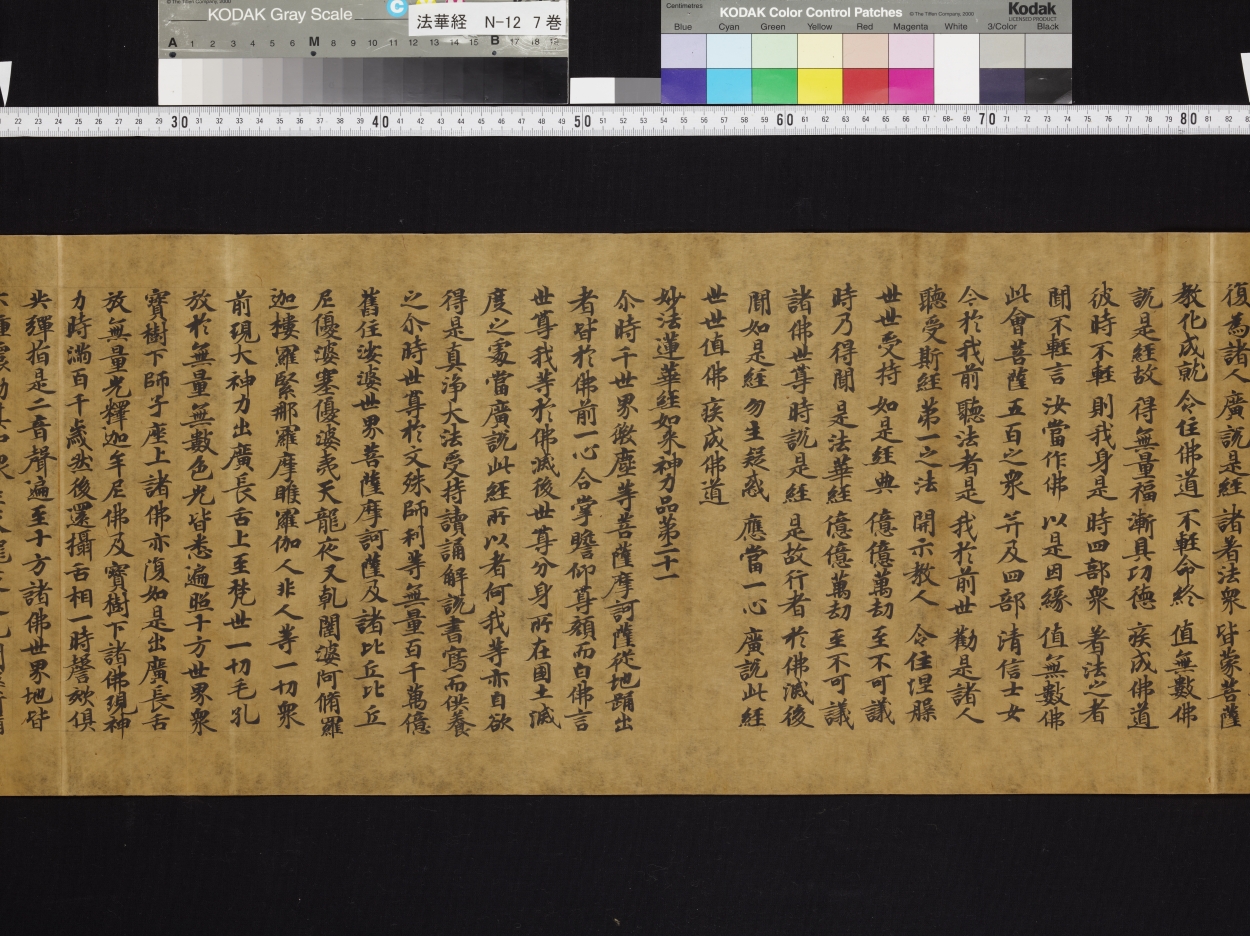 © The Tiffen Company, 2000
KODAK Gray Scale
C
法華経 N-12 7巻
A 1 2 3 4 5 6 M 8 9 10 11 12 13 14 15 B 17 18 19
Centimetres
KODAK Color Control Patches
© The Tiffen Company, 2000
Kodak
LICENSED PRODUCT
Blue Cyan Green Yellow Red Magenta White 3/Color Black
22 23 24 25 26 27 28 29 30 31 32 33 34 35 36 37 38 39 40 41 42 43 44 45 46 47 48 49 50 51 52 53 54 55 56 57 58 59 60 61 62 63 64 65 66 67 68 69 70 71 72 73 74 75 76 77 78 79 80 81 82
復為諸人 廣説是經 諸著法衆 皆蒙菩薩
教化成就 令住佛道 不輕命終 值無數佛
説是經故 得無量福 漸具功德 疾成佛道
彼時不輕 則我身是 時四部衆 著法之者
聞不輕言 汝當作佛 以是因緣 值無數佛
此會菩薩 五百之衆 并及四部 清信士女
今於我前 聽法者是 我於前世 勸是諸人
聽受斯經 第一之法 開示教人 令住涅槃
世世受持 如是經典 億億萬劫 至不可議
時乃得聞 是法華經 億億萬劫 至不可議
諸佛世尊 時説是經 是故行者 於佛滅後
聞如是經 勿生疑惑 應當一心 廣説此經
世世值佛 疾成佛道
妙法蓮華經如来神力品第二十一
尒時千世界微塵等菩薩摩訶薩從地踊出
者皆於佛前一心合掌瞻仰尊顔而白佛言
世尊我等於佛滅後世尊分身所在國土滅
度之處當廣説此經所以者何我等亦自欲
得是真淨大法受持讀誦解説書寫而供養
之尒時世尊於文殊師利等無量百千萬億
舊住娑婆世界菩薩摩訶薩及諸比丘比丘
尼優婆塞優婆夷天龍夜叉乹闥婆阿脩羅
迦樓羅緊那羅摩睺羅伽人非人等一切衆
前現大神力出廣長舌上至梵世一切毛孔
放於無量無數色光皆悉遍照十方世界衆
寶樹下師子座上諸佛亦復如是出廣長舌
放無量光釋迦牟尼佛及寶樹下諸佛現神
力時滿百千歲然後還攝舌相一時謦欬俱
共彈指是二音聲遍至十方諸佛世界地皆